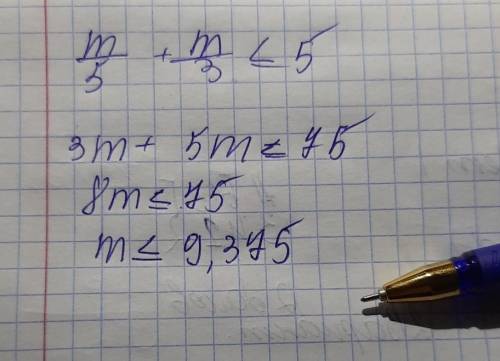 m/5 + m/3 ≤ 5
3m + 5m ≤ 75
8m ≤ 75
m ≤ 9,375